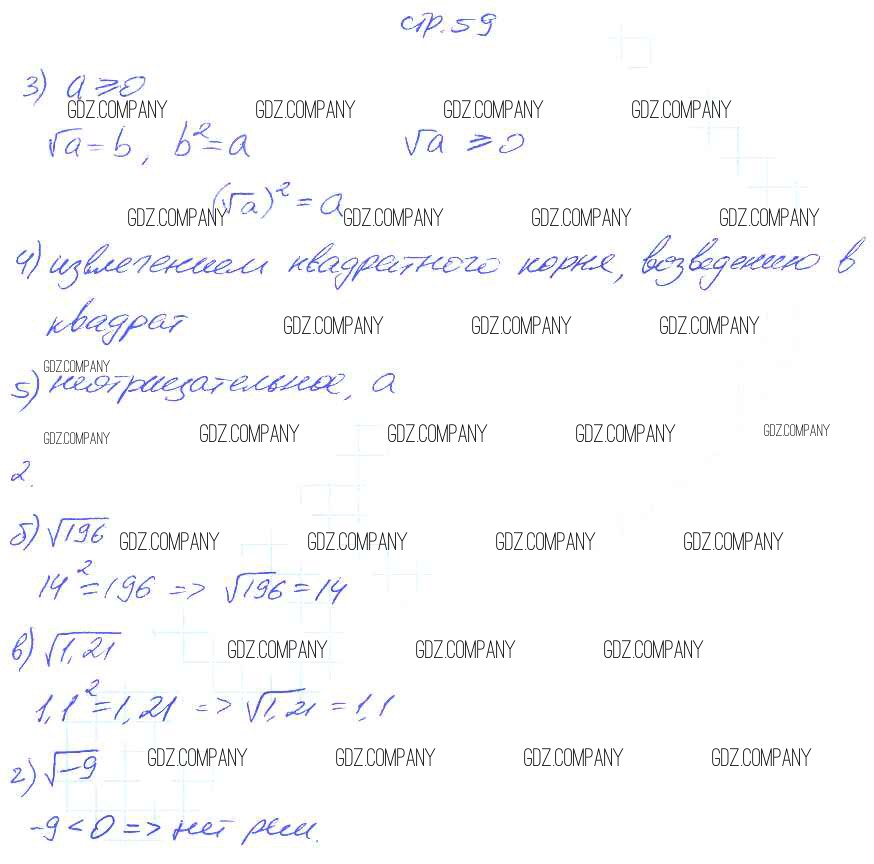 стр.59
3) a ⩾ 0
GDZ.COMPANY GDZ.COMPANY GDZ.COMPANY GDZ.COMPANY
√a = b, b² = a √a ⩾ 0
(√a)² = a
GDZ.COMPANY GDZ.COMPANY GDZ.COMPANY GDZ.COMPANY
4) извлечением квадратного корня, возведению в
квадрат GDZ.COMPANY GDZ.COMPANY GDZ.COMPANY
GDZ.COMPANY
5) неотрицательное, a
GDZ.COMPANY GDZ.COMPANY GDZ.COMPANY GDZ.COMPANY GDZ.COMPANY
2.
б) √196 GDZ.COMPANY GDZ.COMPANY GDZ.COMPANY GDZ.COMPANY
14² = 196 => √196 = 14
в) √1,21 GDZ.COMPANY GDZ.COMPANY GDZ.COMPANY
1,1² = 1,21 => √1,21 = 1,1
г) √-9 GDZ.COMPANY GDZ.COMPANY GDZ.COMPANY GDZ.COMPANY
-9 < 0 => нет реш.